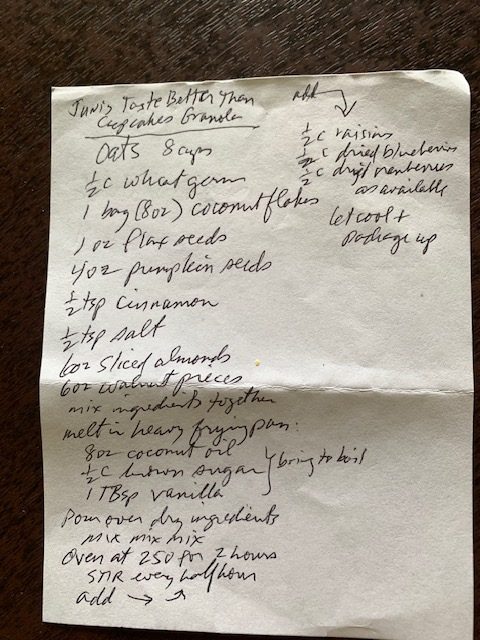 Juni's Taste Better Than
Cupcakes Granola
Oats 8 cups
½ c wheat germ
1 bag (8oz) coconut flakes
1 oz flax seeds
4oz pumpkin seeds
½ tsp cinnamon
½ tsp salt
6oz sliced almonds
6oz walnut pieces
mix ingredients together
melt in heavy frying pan:
8oz coconut oil
½ c brown sugar } bring to boil
1 TBsp vanilla
Pour over dry ingredients
mix mix mix
Oven at 250 for 2 hours
STIR every half hour
add →
add
½ c raisins
½ c dried blueberries
½ c dried cranberries
as available
let cool +
package up